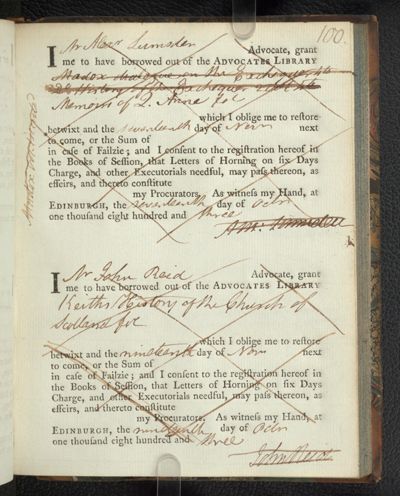 100.
I Mr Alexr Lumsden Advocate, grant
me to have borrowed out of the ADVOCATES LIBRARY
Madox dialogue on the Exchequer 4to
History of the Exchequer
Memoirs of Q. Anne fol
which I oblige me to restore
betwixt and the seventeenth day of Novr next
to come, or the Sum of
in case of Failzie; and I consent to the registration hereof in
the Books of Session, that Letters of Horning on six Days
Charge, and other Executorials needful, may pass thereon, as
effeirs, and thereto constitute
my Procurators. As witness my Hand, at
EDINBURGH, the seventeenth day of Octr
one thousand eight hundred and three
I Mr John Reid Advocate, grant
me to have borrowed out of the ADVOCATES LIBRARY
Keith's History of the Church of
Scotland fol
which I oblige me to restore
betwixt and the nineteenth day of Novr next
to come, or the Sum of
in case of Failzie; and I consent to the registration hereof in
the Books of Session, that Letters of Horning on six Days
Charge, and other Executorials needful, may pass thereon, as
effeirs, and thereto constitute
my Procurators. As witness my Hand, at
EDINBURGH, the nineteenth day of Octr
one thousand eight hundred and three
John Reid